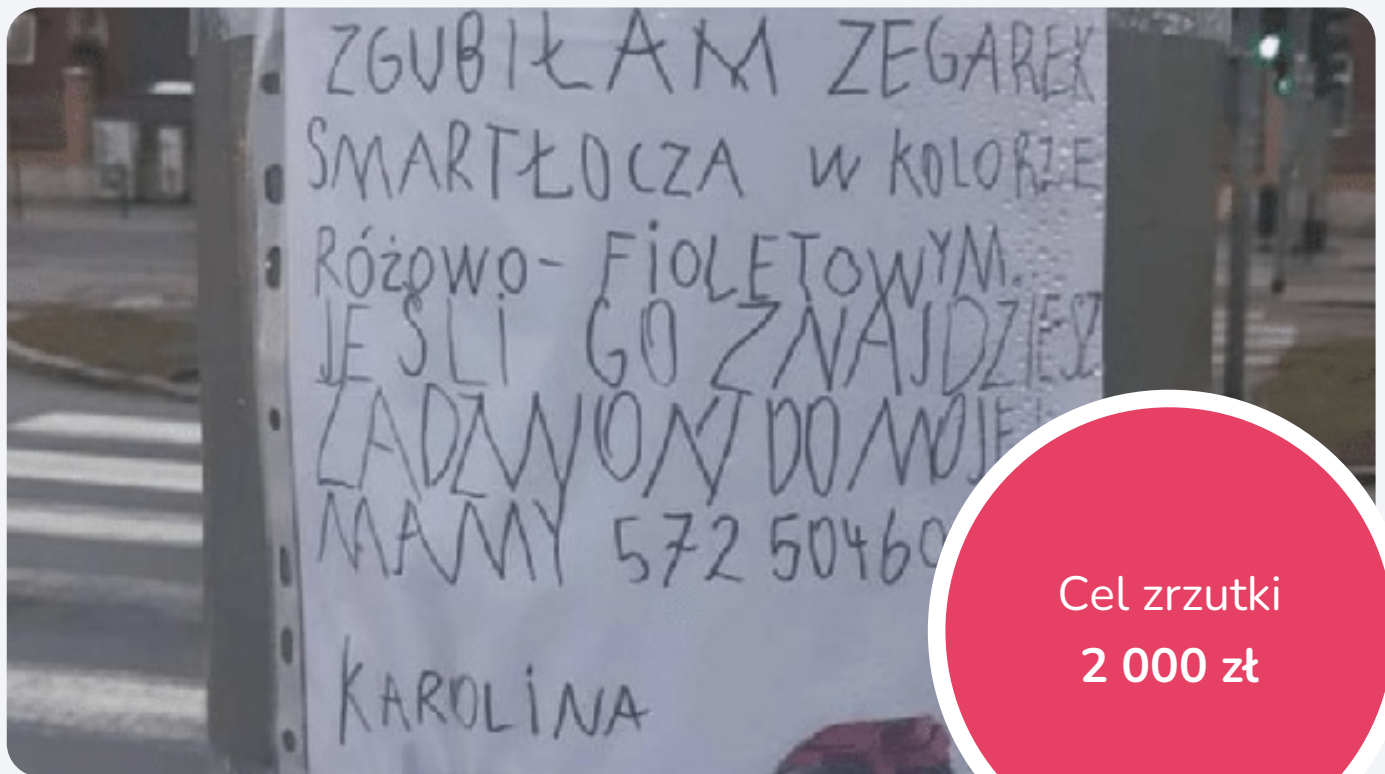 ZGUBIŁAM ZEGAREK
SMARTŁOCZA W KOLORZE
RÓŻOWO- FiOLETOWYM.
JEŚLi GO ZNAJDZIESZ
ZADZWOŃ DO MOJEJ
MAMY 572 50460
KAROLiNA
Cel zrzutki
2 000 zł